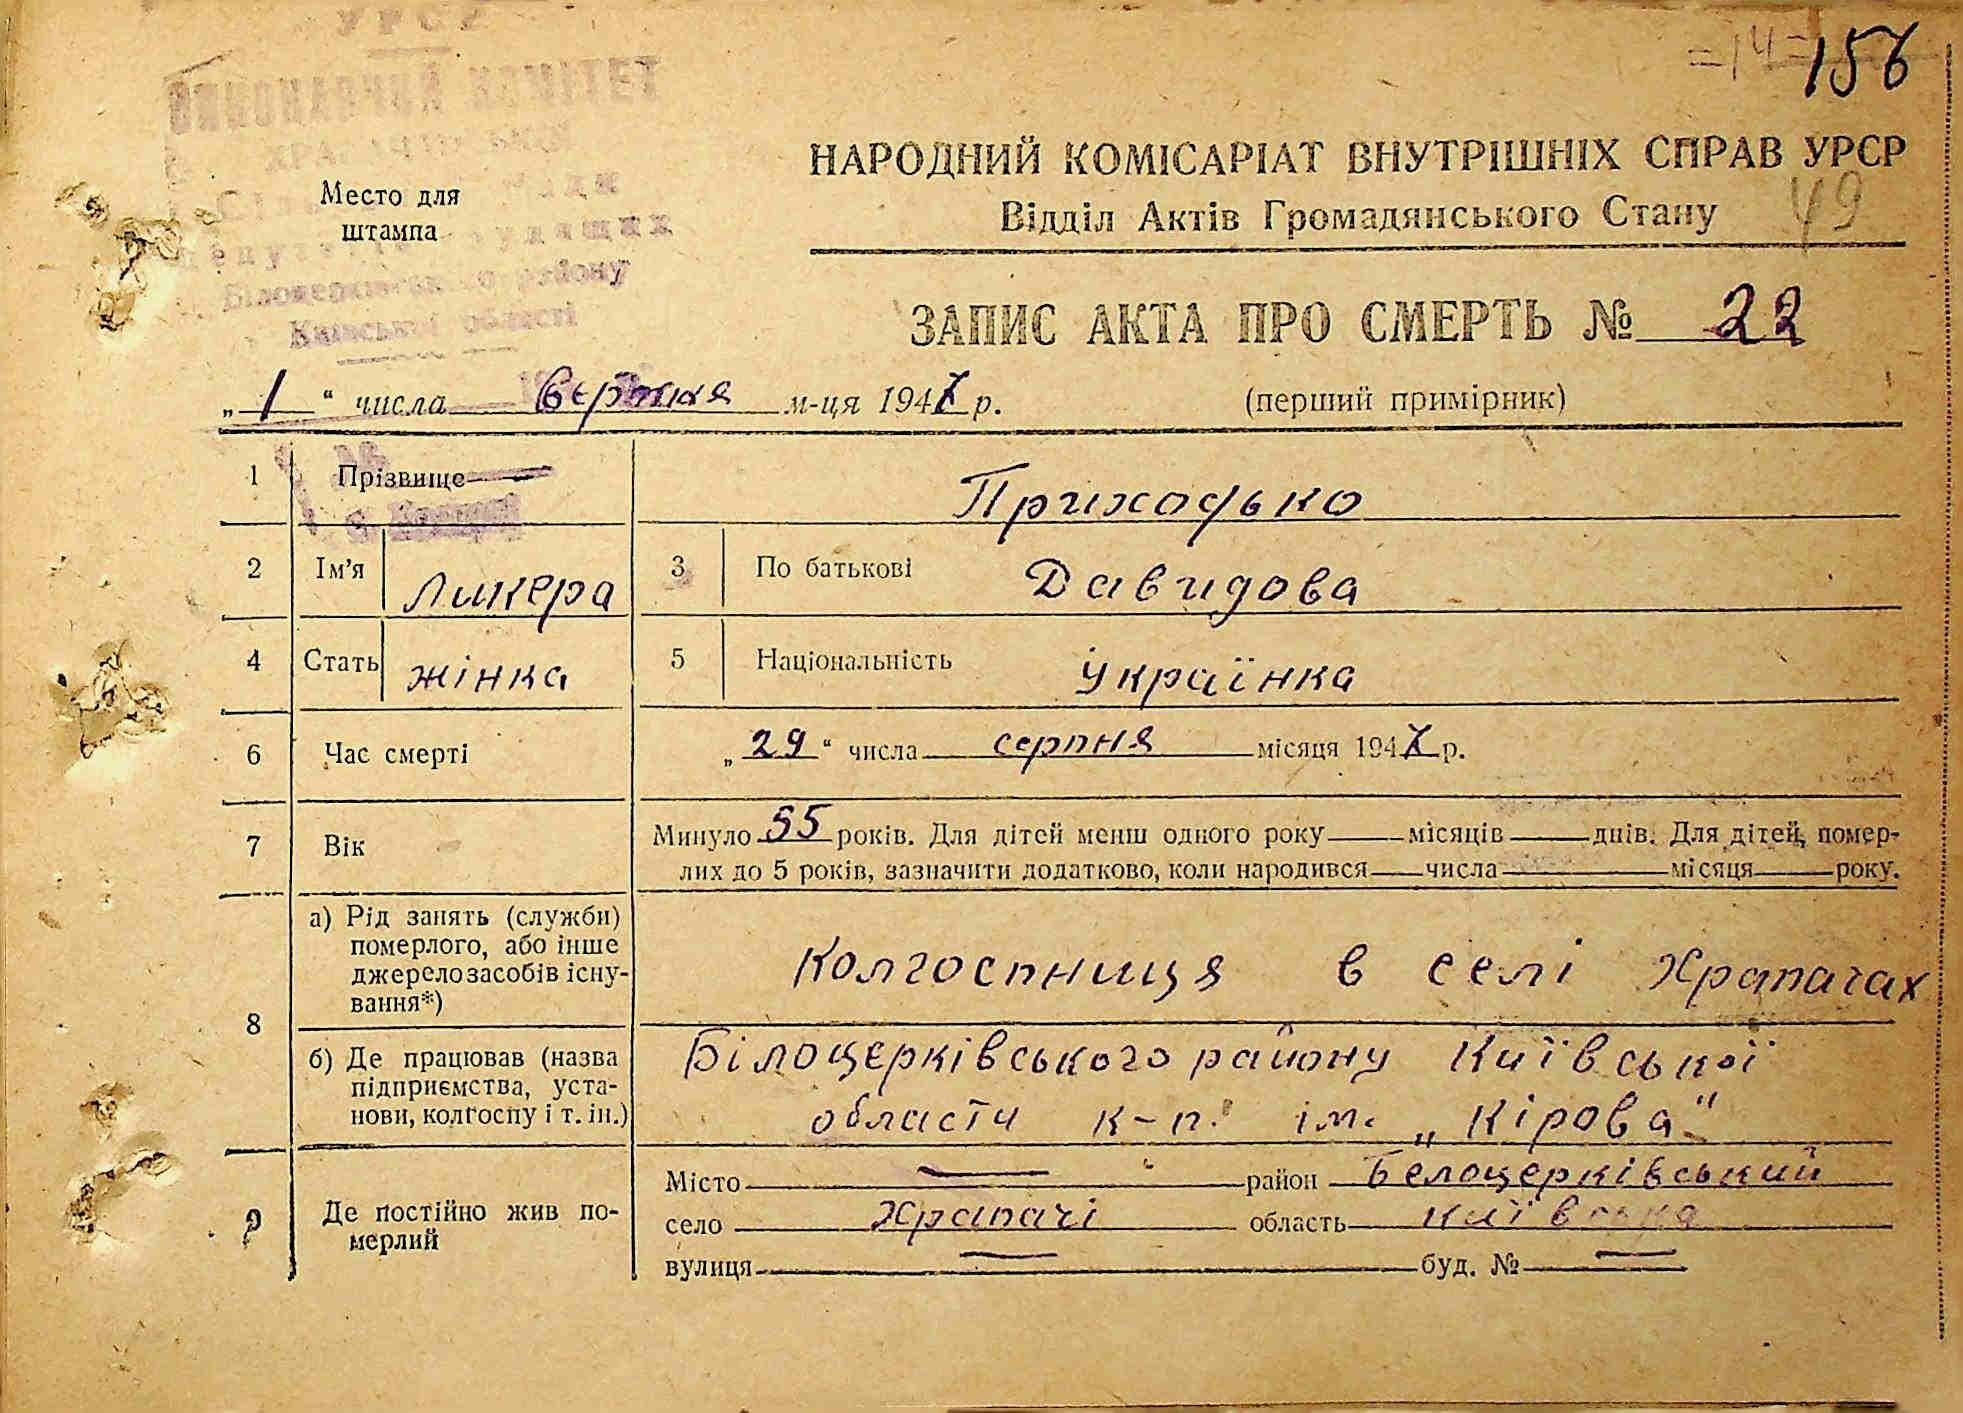 УРСР
ВИКОНАВЧИЙ КОМІТЕТ
=14=
156
НАРОДНИЙ КОМІСАРІАТ ВНУТРІШНІХ СПРАВ УРСР
Відділ Актів Громадянського Стану
49
Место для
штампа
Білоцерківського району
Київської області
ЗАПИС АКТА ПРО СМЕРТЬ № 22
„ 1 “ числа вєрэсня м-ця 1947 р.
(перший примірник)
1 Прізвище Приходько
2 Ім’я Ликера 3 По батькові Давидова
4 Стать жінка 5 Національність Українка
6 Час смерті „ 29 “ числа серпня місяця 1947 р.
7 Вік Минуло 55 років. Для дітей менш одного року місяців днів. Для дітей, помер-
лих до 5 років, зазначити додатково, коли народився числа місяця року.
8 а) Рід занять (служби)
померлого, або інше
джерело засобів існу-
вання*)
Колгоспниця в селі Храпачах
б) Де працював (назва
підприємства, уста-
нови, колгоспу і т. ін.)
Білоцерківського району Київської
области к-п. ім. „Кірова"
9 Де постійно жив по-
мерлий
Місто — район Белоцерківський
село Храпачі область київська
вулиця — буд. № —